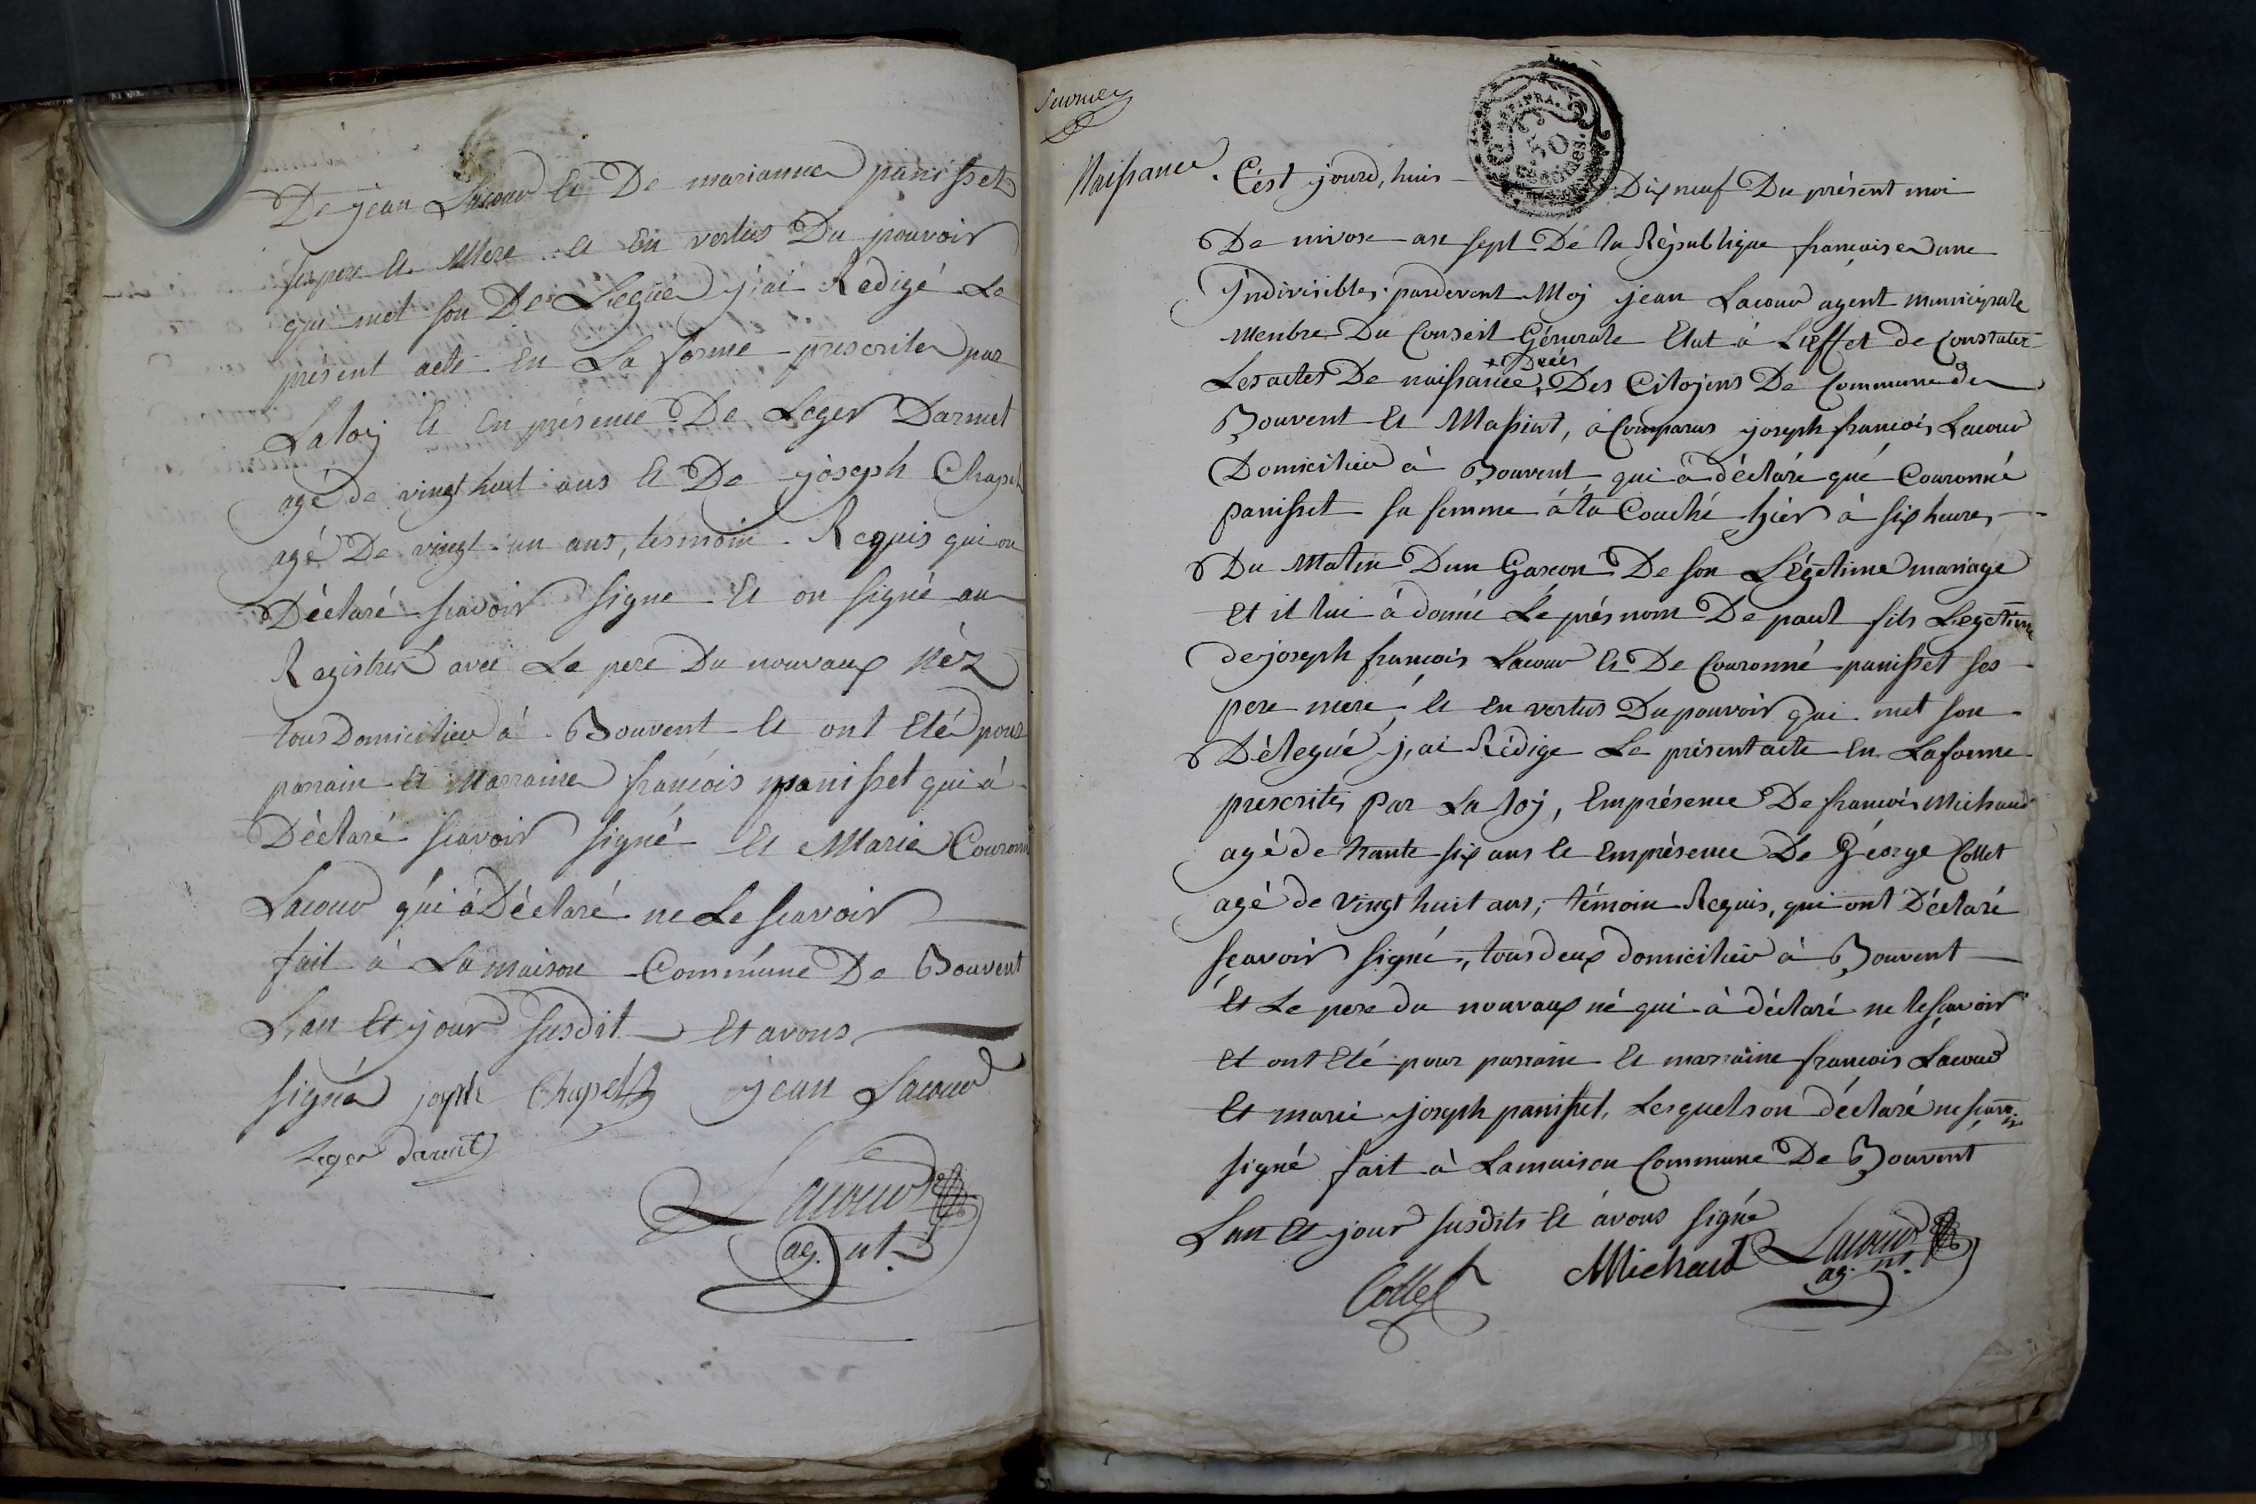 De jean Lacour Et De marianne panisset
ses pere Et Mere Et En vertus Du pouvoir
qui met son Deleguée j'ai Rédigé Le
présent acte En La forme prescrite par
La loy Et En présence De Leger Darmet
agé de vingt huit ans Et De joseph Chapel
agé De vingt un ans, tesmoin Requis qui on
Déclaré scavoir signe Et on signé au
Registres avec Le pere Du nouvaux Néz
tous Domicilieu à Bouvent Et ont Eté pour
parrain Et Marraine francois panisset qui à
Déclaré scavoir signé Et Marie Couronné
Lacour qui à Déclaré ne Le scavoir
fait à La maison Commune De Bouvent
L'an Et jour susdit Et avons
signé joseph Chapel jean Lacour
Leger darmet
Lacour
ag. nt.
Naissance.
50
C'est jourd,huis Dix neuf Du présent moi
De nivose an sept De la République française une
Indivisibles, pardevent Moy jean Lacour agent municipale
Menbre Du Conseil Génerale Elut à L'effet de Constater
Les actes De naissance, Des Citoyens De Commune de
Bouvent Et Massiat, à Comparus joseph francois Lacour
Domicilieu à Bouvent qui à déclaré que Couronné
panisset sa femme à la Couché hier à six heures
Du Matin Dun Garcon De son Légetime mariage
Et il lui à donné Le présnom De paul fils Legetime
de joseph francois Lacour Et De Couronné panisset ses
pere mere, Et En vertus Du pouvoir qui met son
Délegué j,ai Rédige Le présent acte En La forme
prescrites Par La loy, Emprésence De francois Michaud
agé de trante six ans Et Emprésence De George Collet
agé de vingt huit ans; témoin Requis, qui ont Déclaré
scavoir signé, tous deux domicilieu à Bouvent
Et Le pere du nouvaux né qui à déclaré ne le scavoir
Et ont Eté pour parrain Et marraine francois Lacour
Et marie joseph panisset, Lesquels on déclaré ne scavoir
signé fait à La maison Commune De Bouvent
L'an Et jour susdits Et avons signé
Collet Michaud Lacour
ag. nt.